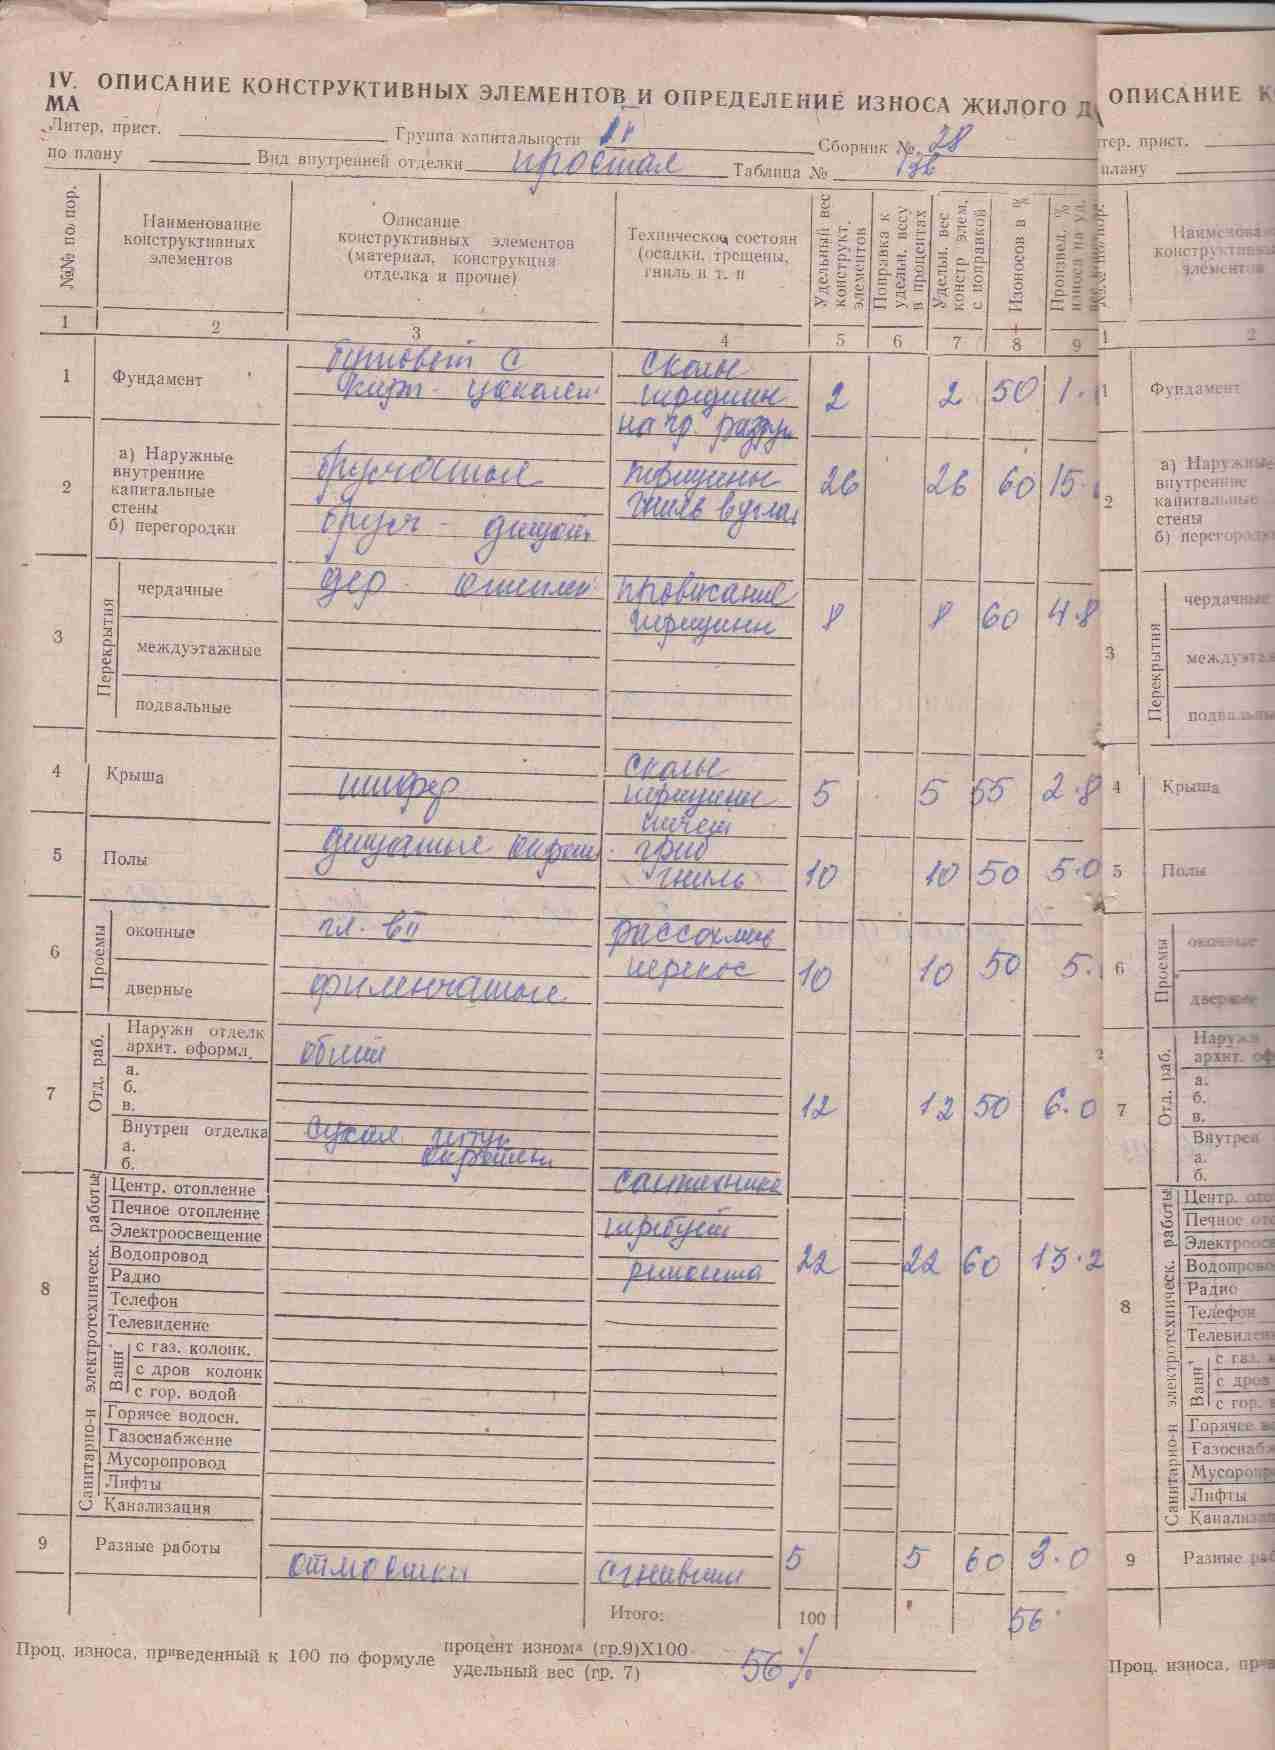 IV. ОПИСАНИЕ КОНСТРУКТИВНЫХ ЭЛЕМЕНТОВ И ОПРЕДЕЛЕНИЕ ИЗНОСА ЖИЛОГО Д
МА
Литер, прист. Группа капитальности Сборник № 28
по плану Вид внутренней отделки простая Таблица №
№№ по пор.
Наименование конструктивных элементов
Описание конструктивных элементов (материал, конструкция отделка и прочие)
Техническое состоян (осадки, трещены, гниль и т. п
Удельный вес конструкт. элементов
Поправка к удельн. весу в процентах
Удельн. вес констр элем, с поправкой
Изоносов в %
Произвед. % износа на уд.
1 2 3 4 5 6 7 8 9
1 Фундамент бутовый с кирп. цоколем сколы трещин на гр. разруш 2 2 50 1.
2 а) Наружные внутренние капитальные стены брусчатые трещины гниль в углах 26 26 60 15.
б) перегородки бруск - дощат
3 Перекрытия
чердачные дер. утеплен провисание трещины 8 8 60 4.8
междуэтажные
подвальные
4 Крыша шифер сколы трещины течет 5 5 55 2.8
5 Полы дощатые окраш. гриб гниль 10 10 50 5.0
6 Проемы
оконные гл. рассохлись перекос 10 10 50 5.
дверные филенчатые
7 Отд. раб.
Наружн отделк архит. оформл. обшит
а.
б.
в.
12 12 50 6.0
Внутрен отделка сухая штук окрашен
а.
б.
8 Санитарно-и электротехническ. работы
Центр. отопление сантехника
Печное отопление
Электроосвещение требует
Водопровод 22 22 60 13.2
Радио ремонта
Телефон
Телевидение
Ванн
с газ. колонк.
с дров колонк
с гор. водой
Горячее водосн.
Газоснабжение
Мусоропровод
Лифты
Канализация
9 Разные работы отмостки сгнившая 5 5 60 3.0
Итого: 100 56
Проц. износа, приведенный к 100 по формуле процент износа (гр.9)Х100 56%
удельный вес (гр. 7)
ОПИСАНИЕ К
тер. прист.
плану
1 2
1 Фундамент
2 а) Наружные
внутренние
капитальные
стены
б) перегородк
3 Перекрытия
чердачные
междуэтаж
подвальны
4 Крыша
5 Полы
6 Проемы
оконные
дверные
7 Отд. раб.
Наружн
архит. оф
а.
б.
в.
Внутрен
а.
б.
8 Санитарно-и электротехническ. работы
Центр. ото
Печное ото
Электроосв
Водопрово
Радио
Телефон
Телевиден
Ванн
с газ. к
с дров
с гор. в
Горячее во
Газоснабж
Мусоропро
Лифты
Канализац
9 Разные раб
Проц. износа, прив